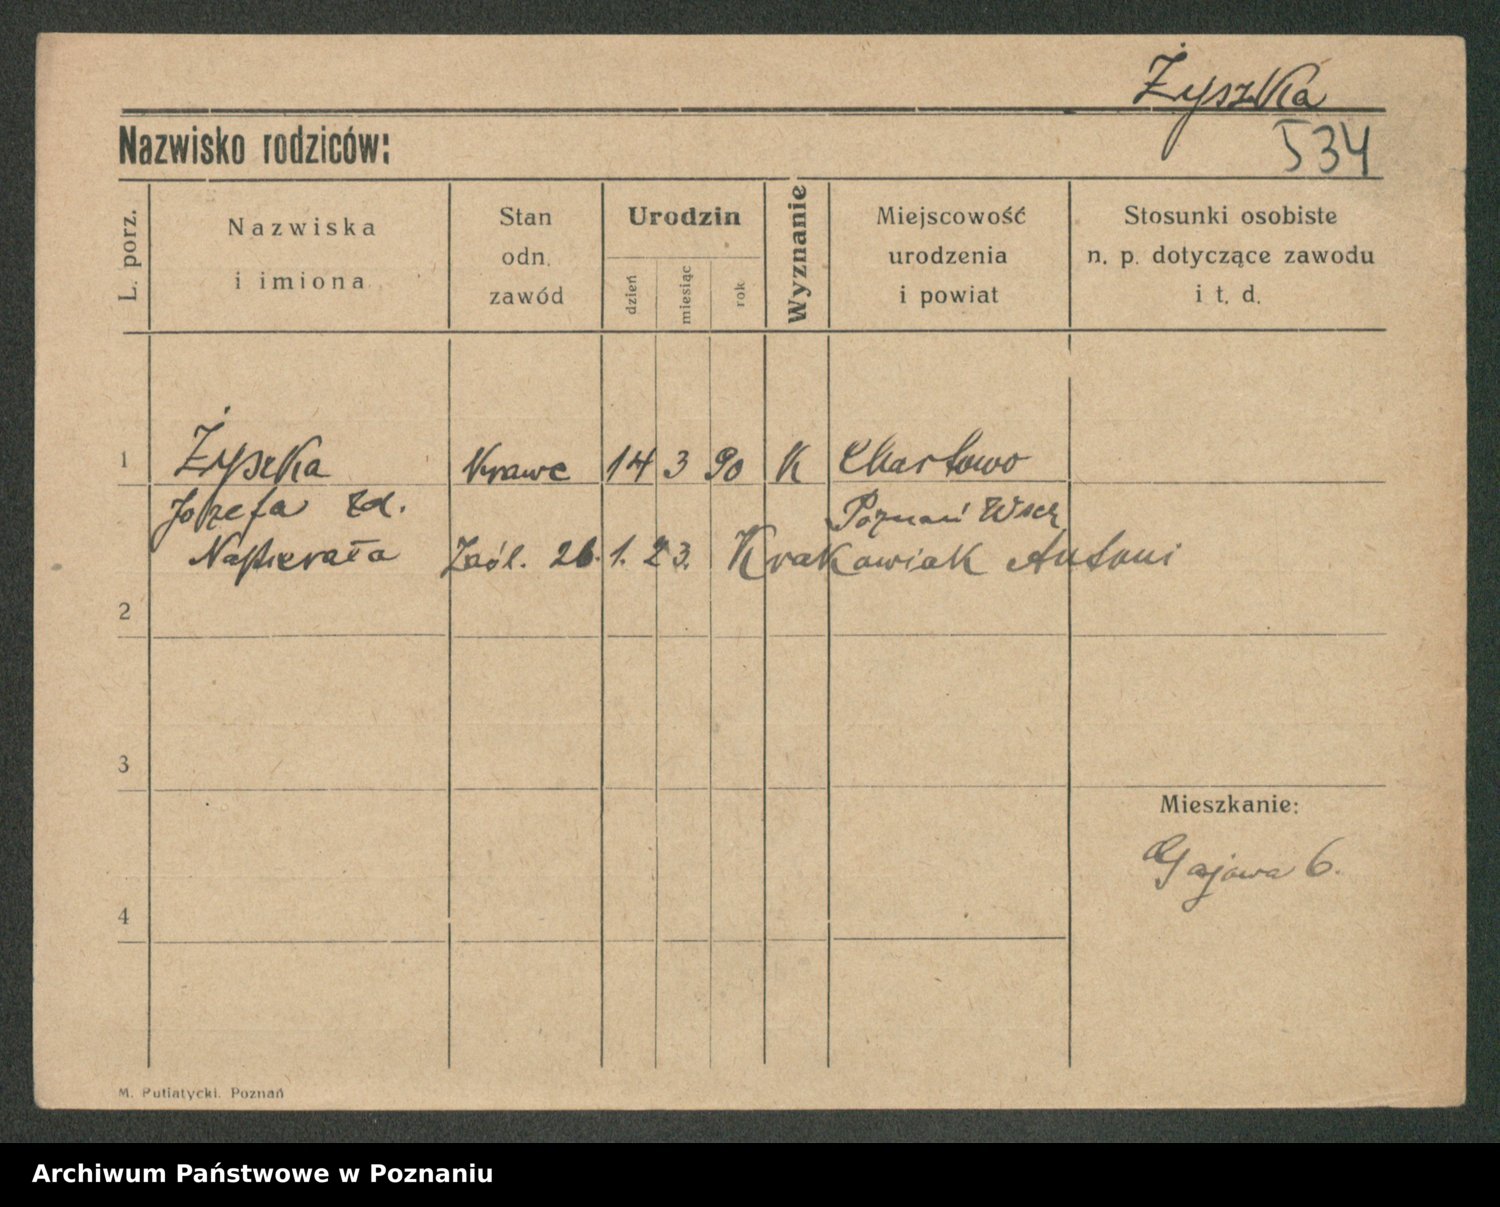 Żyszka
534
Nazwisko rodziców:
L. porz.
Nazwiska
i imiona
Stan
odn.
zawód
Urodzin
dzień
miesiąc
rok
Wyznanie
Miejscowość
urodzenia
i powiat
Stosunki osobiste
n. p. dotyczące zawodu
i t. d.
1 Żyszka Krawc 14 3 90 K Chartowo
Józefa zd. Poznań Wsch
Napierała Zaśl. 26. 1. 23. Krakowiak Antoni
2
3
Mieszkanie:
Gajowa 6.
4
M. Putiatycki. Poznań
Archiwum Państwowe w Poznaniu